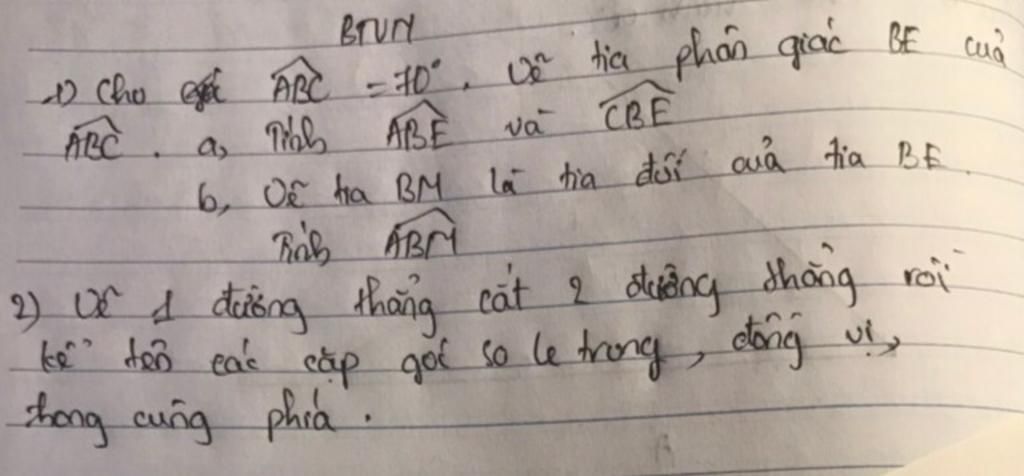 BTVN
1) Cho góc ABC = 70°. Vẽ tia phân giác BE của
ABC. a, Tính ABE và CBE
b, Vẽ tia BM là tia đối của tia BE.
Tính ABM
2) Vẽ 1 đường thẳng cắt 2 đường thẳng rồi
kể tên các cặp góc so le trong, đồng vị,
trong cùng phía.